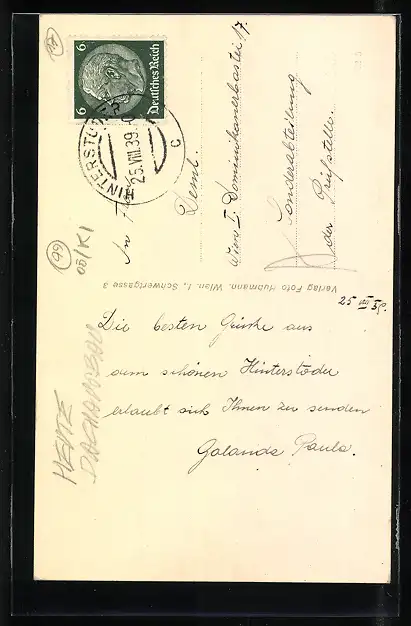 Deutsches Reich
6 6
HINTERSTODER
25.VIII.39
c
An Frl.
Deml.
Wien I. Dominikanerbastei 17.
Sonderabteilung
der Prüfstelle.
Verlag Foto Hußmann, Wien, I., Schwertgasse 3
25 VIII 39.
Die besten Grüße aus
dem schönen Hinterstoder
erlaubt sich Ihnen zu senden
Golanda Paula.
99
HEUTE